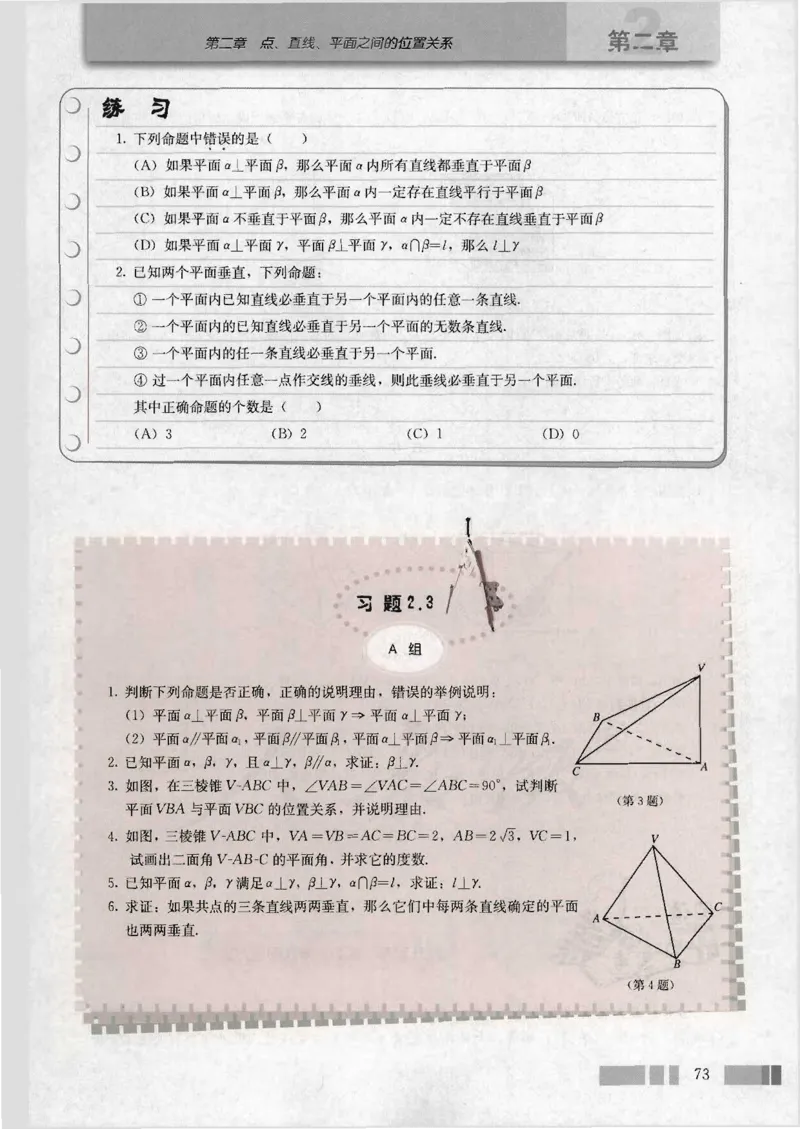 第二章 点、直线、平面之间的位置关系
第二章
练 习
1. 下列命题中错误的是（　　）
(A) 如果平面α⊥平面β，那么平面α内所有直线都垂直于平面β
(B) 如果平面α⊥平面β，那么平面α内一定存在直线平行于平面β
(C) 如果平面α不垂直于平面β，那么平面α内一定不存在直线垂直于平面β
(D) 如果平面α⊥平面γ，平面β⊥平面γ，α∩β=l，那么l⊥γ
2. 已知两个平面垂直，下列命题：
① 一个平面内已知直线必垂直于另一个平面内的任意一条直线.
② 一个平面内的已知直线必垂直于另一个平面的无数条直线.
③ 一个平面内的任一条直线必垂直于另一个平面.
④ 过一个平面内任意一点作交线的垂线，则此垂线必垂直于另一个平面.
其中正确命题的个数是（　　）
(A) 3 (B) 2 (C) 1 (D) 0
习 题 2.3
A 组
1. 判断下列命题是否正确，正确的说明理由，错误的举例说明：
(1) 平面α⊥平面β，平面β⊥平面γ⇒平面α⊥平面γ；
(2) 平面α∥平面α₁，平面β∥平面β₁，平面α⊥平面β⇒平面α₁⊥平面β₁.
2. 已知平面α，β，γ，且α⊥γ，β∥α，求证：β⊥γ.
3. 如图，在三棱锥V-ABC中，∠VAB=∠VAC=∠ABC=90°，试判断
平面VBA与平面VBC的位置关系，并说明理由.
V
B
C
A
（第3题）
4. 如图，三棱锥V-ABC中，VA=VB=AC=BC=2，AB=2√3，VC=1，
试画出二面角V-AB-C的平面角，并求它的度数.
5. 已知平面α，β，γ满足α⊥γ，β⊥γ，α∩β=l，求证：l⊥γ.
6. 求证：如果共点的三条直线两两垂直，那么它们中每两条直线确定的平面
也两两垂直.
V
A
C
B
（第4题）
73